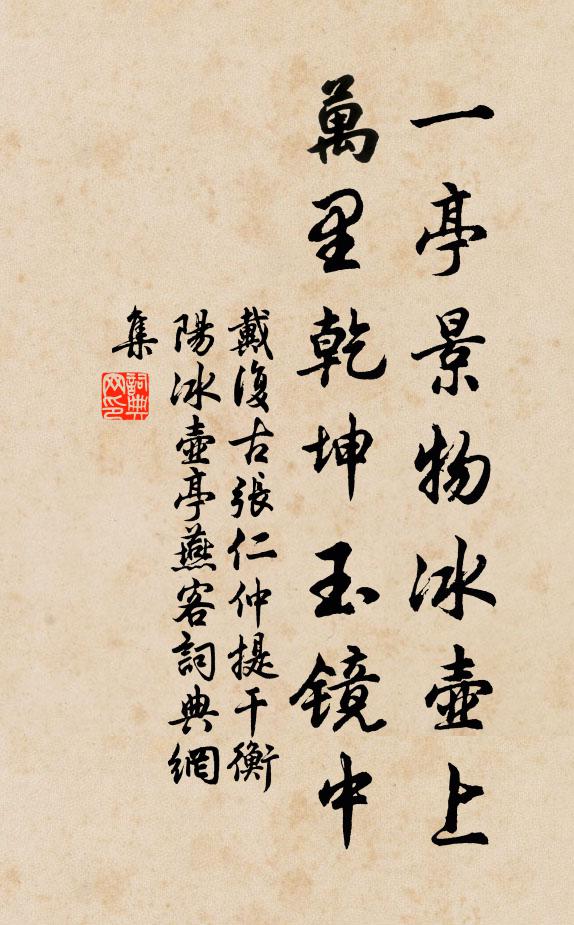 一亭景物冰壺上
萬里乾坤玉鏡中
戴復古張仁仲提干衡
陽冰壺亭燕客詞典網
集
詞典
网印